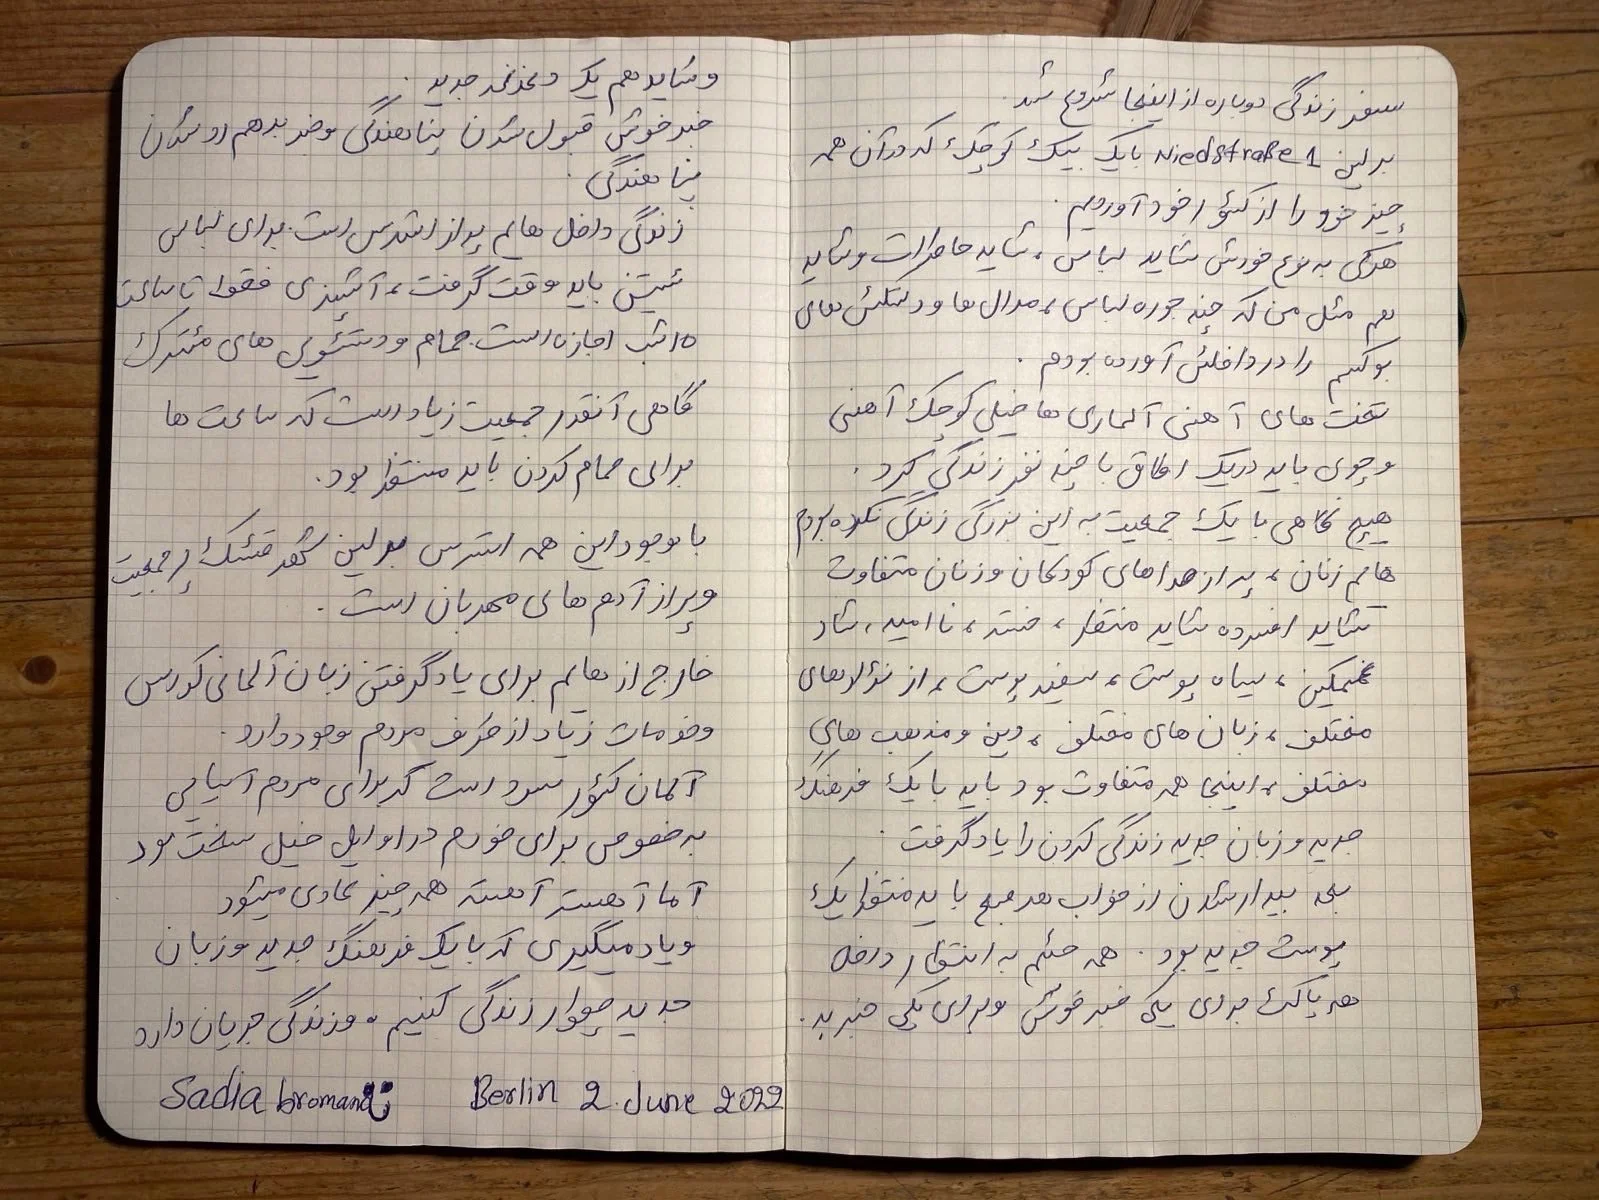 سفر زندگی دوباره از اینجا شروع شد.
برلین Niedstraße 1 با یک بیک کوچک که در آن همه
چیز خود را از کشور خود آوردیم.
هرکی به نوع خودش شاید لباس، شاید خاطرات و شاید
هم مثل من که چند جوره لباس، مدال ها و دستکش های
بوکسم را در داخلش آورده بودم.
تخت های آهنی الماری ها خیلی کوچک آهنی
و چوی باید در یک اطاق با چند نفر زندگی کرد.
هیچ گاهی با یک جمعیت به این بزرگی زندگی نکرده بودم
هایم زنان، پر از صداهای کودکان و زنان متفاوت
شاید افسرده شاید منتظر، خسته، نا امید، شاد
غمگین، سیاه پوست، سفید پوست، از نژادهای
مختلف، زبان های مختلف، دین و مذهب های
مختلف، اینجا همه متفاوت بود باید با یک فرهنگ
جدید و زبان جدید زندگی کردن را یاد گرفت.
بعد بیدار شدن از خواب هر صبح باید منتظر یک
پوست جدید بود. همه چشم به انتظار در خط
هر پاکت برای یکی خبر خوش و برای یکی خبر بد.
و شاید هم یک دغدغه جدید.
خبر خوش قبول شدن پناهندگی و خبر بد هم رد شدن
پناهندگی.
زندگی داخل هایم پر از استرس است. برای لباس
شستن باید وقت گرفت، آشپزی فقط تا ساعت
۱۰ شب اجازه است. حمام و دستشویی های مشترک
گاهی آنقدر جمعیت زیاد است که ساعت ها
برای حمام کردن باید منتظر بود.
با وجود این همه استرس برلین شهر قشنگ پرجمعیت
و پر از آدم های مهربان است.
خارج از هایم برای یاد گرفتن زبان آلمانی کورس
و خدمات زیاد از طرف مردم وجود دارد.
آلمان کشور سرد است که برای مردم آسیایی
به خصوص برای خودم در اوایل خیل سخت بود
آما آهسته آهسته همه چیز عادی میشود
و یاد میگیری که با یک فرهنگ جدید و زبان
جدید چطور زندگی کنیم. و زندگی جریان دارد
Sadia bromand Berlin 2. June 2022